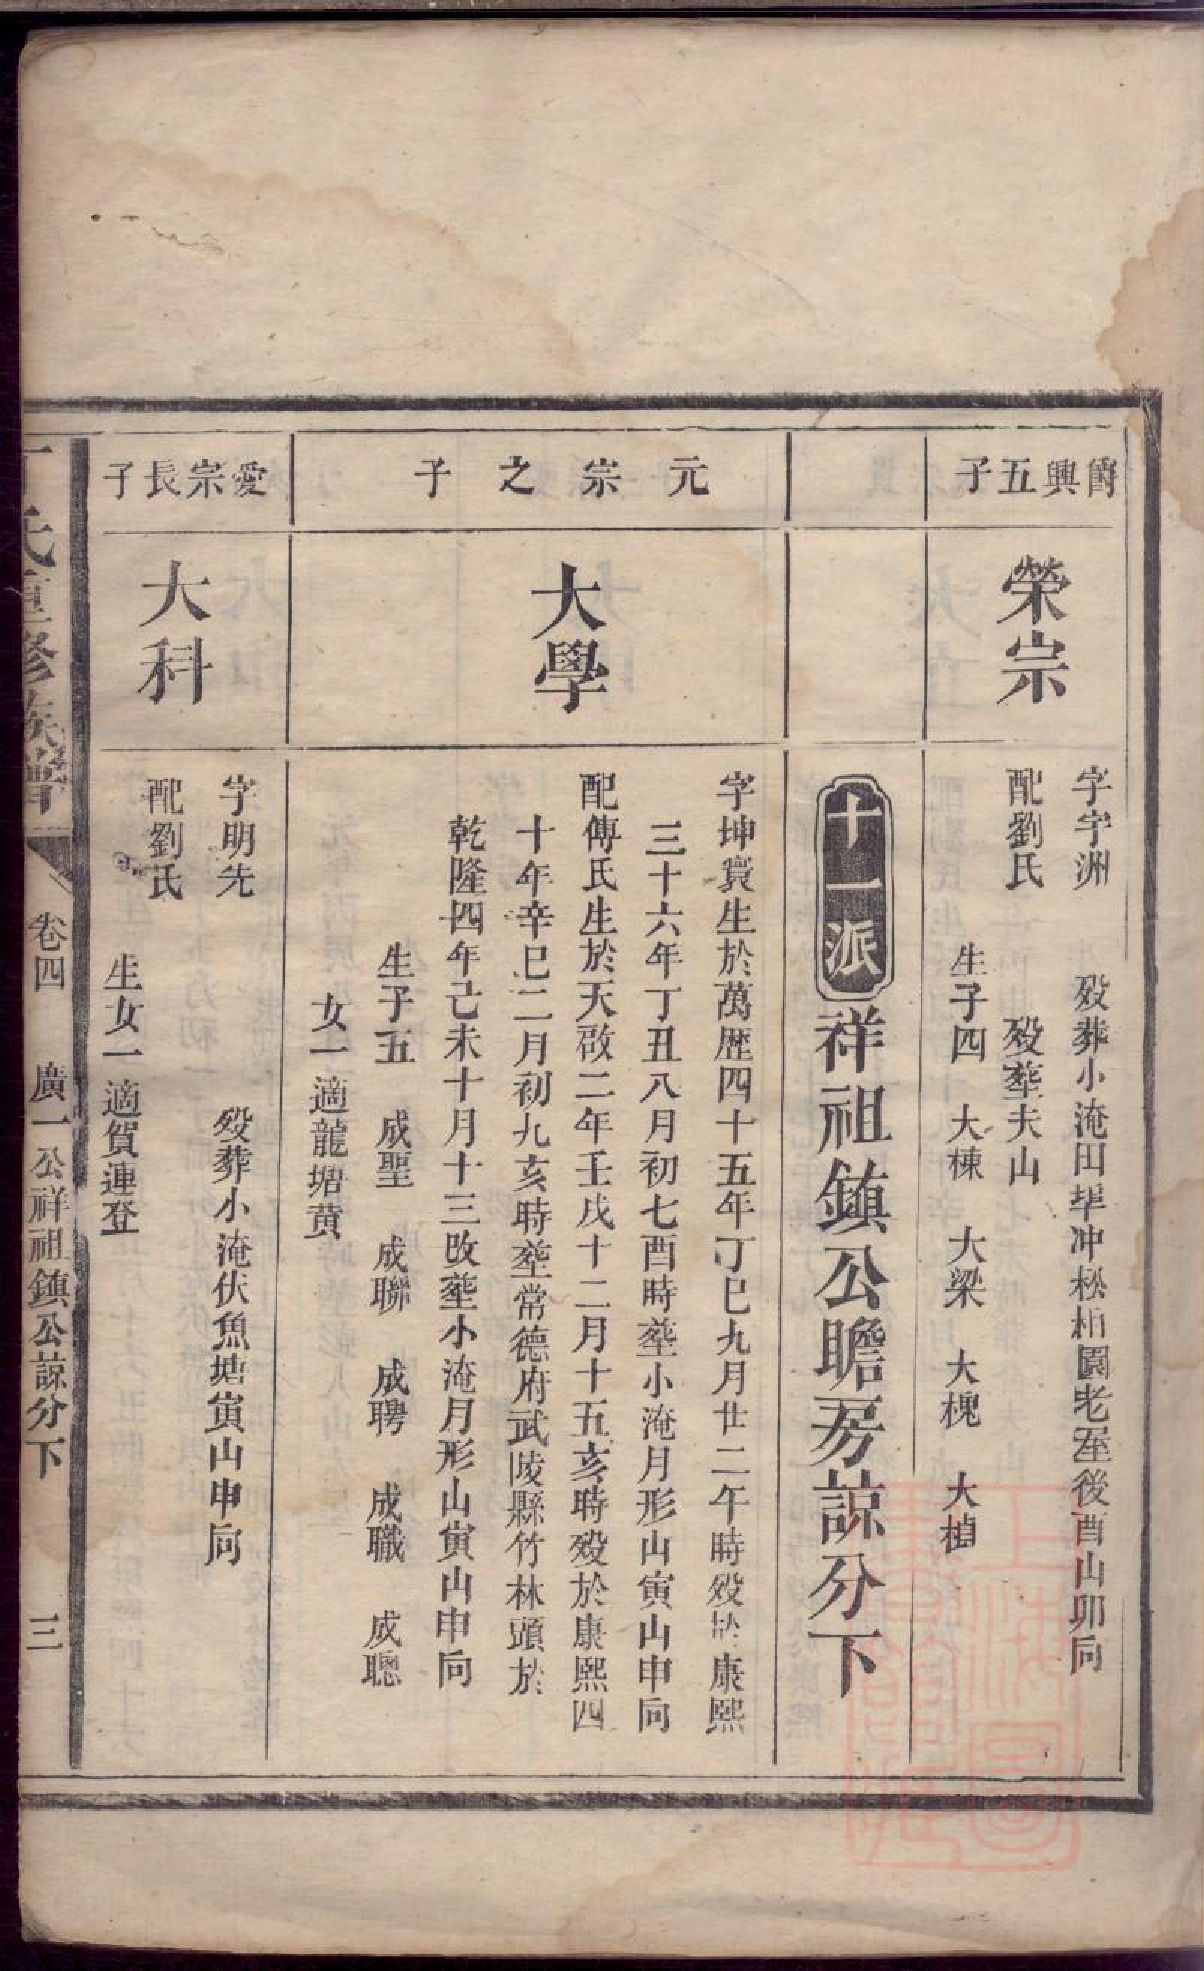 爵興五子
榮宗
字宇洲　歿葬小淹田𡍼冲松柏園老屋後酉山卯向
配劉氏　歿塟夫山
生子四　大棟　大梁　大槐　大楨
十一派祥祖鎮公瞻房諒分下
元宗之子
大學
字坤寰生於萬歷四十五年丁巳九月廿二午時歿於康熙
三十六年丁丑八月初七酉時塟小淹月形山寅山申向
配傅氏生於天啟二年壬戌十二月十五亥時歿於康熙四
十年辛巳二月初九亥時塟常德府武陵縣竹林頭於
乾隆四年己未十月十三改塟小淹月形山寅山申向
生子五　成聖　成聯　成聘　成職　成聰
女一適龍塘黄
愛宗長子
大科
字明先　歿葬小淹伏魚塘寅山申向
配劉氏
生女一適賀連登
丁氏重修族譜　卷四　廣一公祥祖鎮公諒分下　三